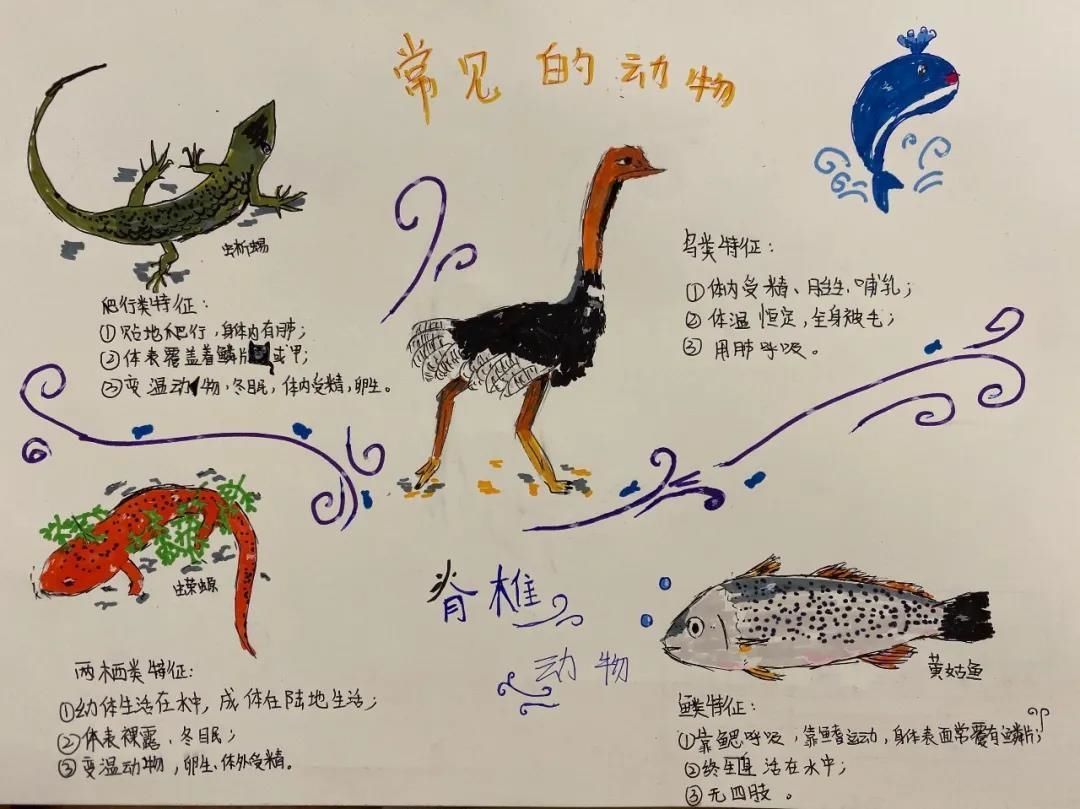 常见的动物
蜥蜴
爬行类特征:
①贴地爬行,身体内有肺;
②体表覆盖着鳞片或甲;
③变温动物,冬眠,体内受精,卵生。
鸟类特征:
①体内受精、胎生、哺乳;
②体温恒定,全身被毛;
③用肺呼吸。
蝾螈
两栖类特征:
①幼体生活在水中,成体在陆地生活;
②体表裸露、冬眠;
③变温动物,卵生、体外受精。
脊椎
动物
黄姑鱼
鱼类特征:
①靠鳃呼吸,靠鳍运动,身体表面常覆有鳞片;
②终生活在水中;
③无四肢。